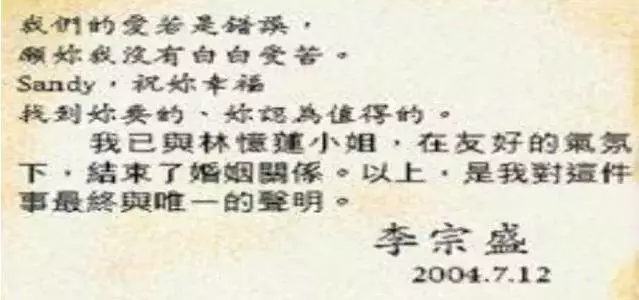 我們的愛若是錯誤，
願妳我沒有白白受苦。
Sandy，祝妳幸福
找到妳要的、妳認為值得的。
我已與林憶蓮小姐，在友好的氣氛
下，結束了婚姻關係。以上，是我對這件
事最終與唯一的聲明。
李宗盛
2004.7.12